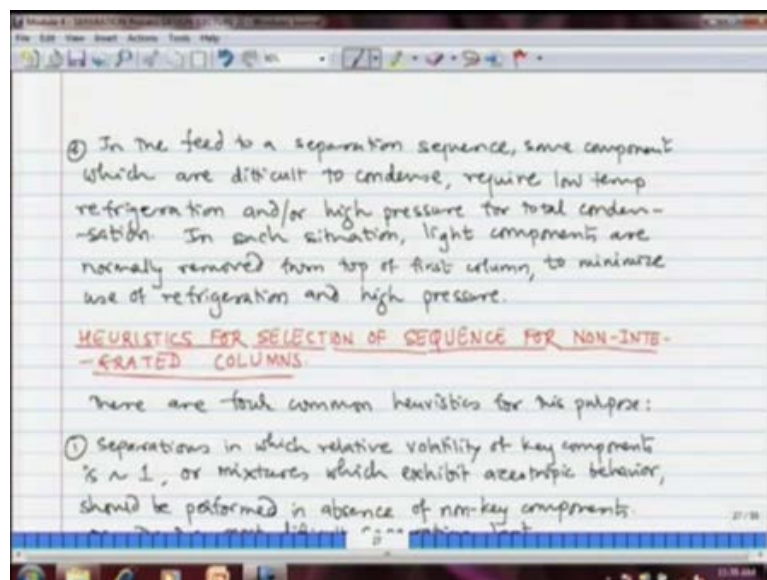 Module 4 - SEPARATION Process DESIGN (LECTURE 2) - Windows Journal
File Edit View Insert Actions Tools Help
② In the feed to a separation sequence, some component
which are difficult to condense, require low temp
refrigeration and/or high pressure for total conden-
-sation. In such situation, light components are
normally removed from top of first column, to minimize
use of refrigeration and high pressure.
HEURISTICS FOR SELECTION OF SEQUENCE FOR NON-INTE-
-GRATED COLUMNS.
There are four common heuristics for this purpose:
① Separations in which relative volatility of key components
is ~ 1, or mixtures which exhibit azeotropic behavior,
should be performed in absence of non-key components.
most difficult
11:36 AM